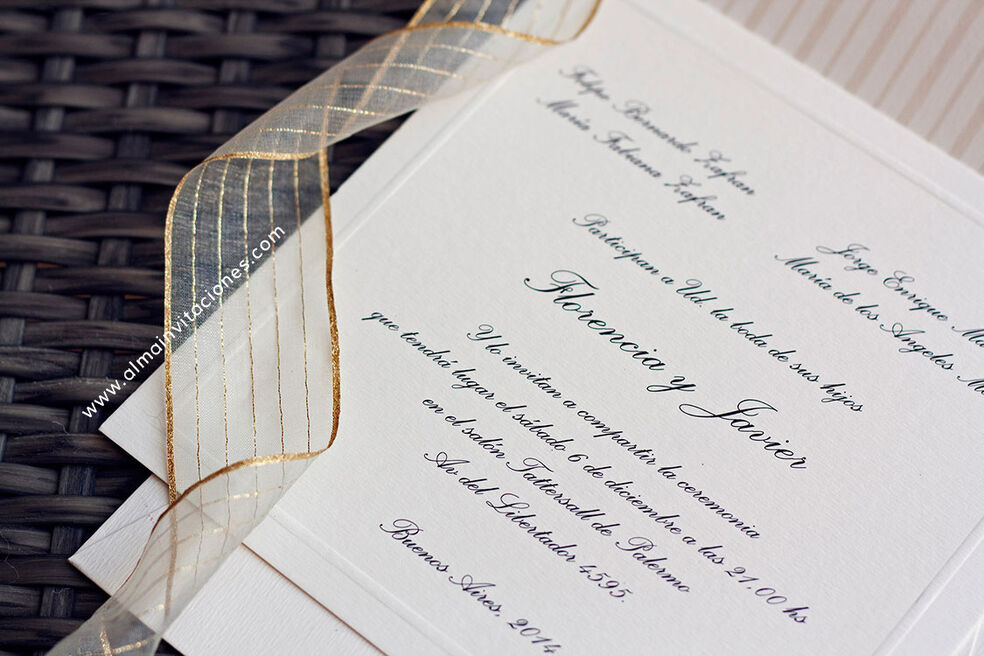 Felipe Bernardo Zafran
María Fabiana Zafran
Jorge Enrique
María de los Angeles
Participan a Ud. la boda de sus hijos
Florencia y Javier
Y lo invitan a compartir la ceremonia
que tendrá lugar el sábado 6 de diciembre a las 21.00 hs
en el salón Tattersall de Palermo
Av del Libertador 4595.
Buenos Aires, 2014
www.almainvitaciones.com